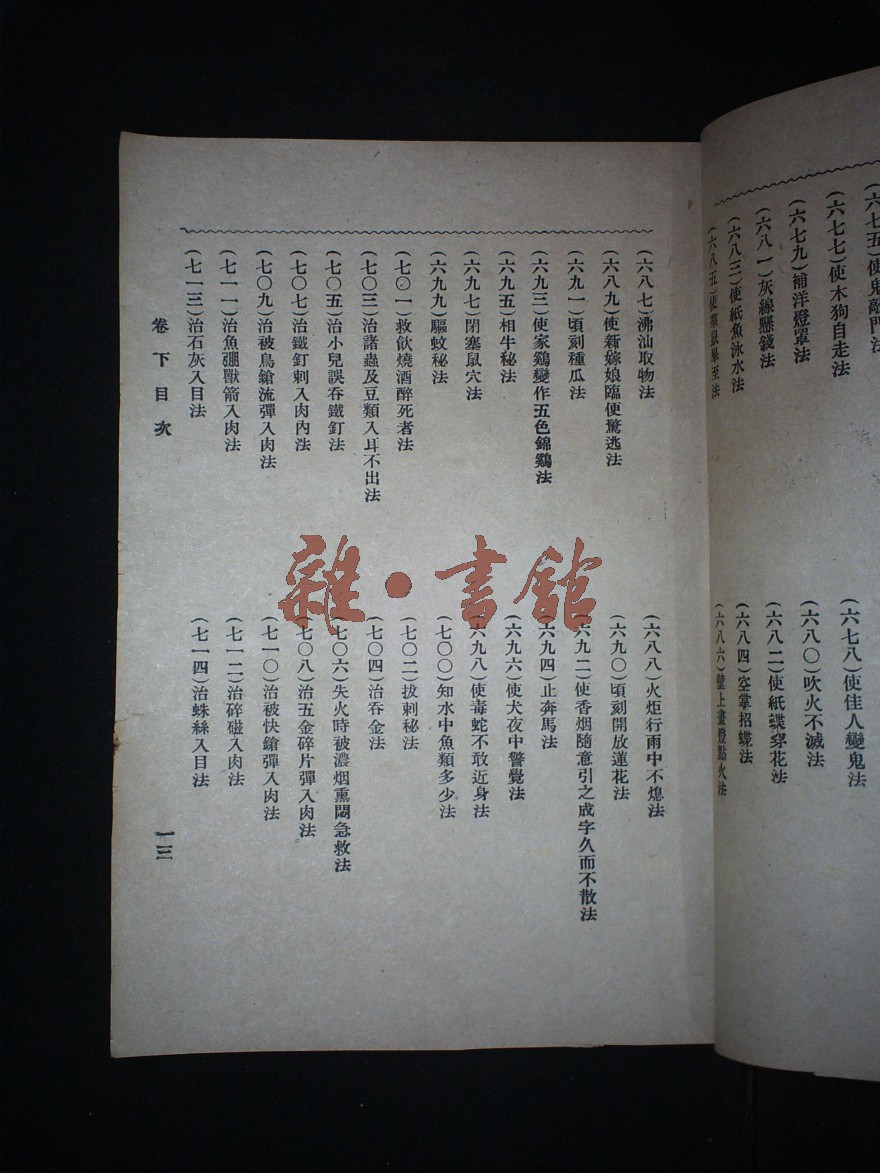 (六七五)使鬼敲門法
(六七七)使木狗自走法
(六七九)補洋燈罩法
(六八一)灰線懸錢法
(六八三)使紙魚泳水法
(六八五)使羣鼠畢至法
(六七八)使佳人變鬼法
(六八〇)吹火不滅法
(六八二)使紙蝶穿花法
(六八四)空掌招蝶法
(六八六)壁上畫燈點火法
(六八七)沸油取物法
(六八九)使新嫁娘臨便驚逃法
(六九一)頃刻種瓜法
(六九三)使家鷄變作五色錦鷄法
(六九五)相牛秘法
(六九七)閉塞鼠穴法
(六九九)驅蚊秘法
(七〇一)救飲燒酒醉死者法
(七〇三)治諸蟲及豆類入耳不出法
(七〇五)治小兒誤吞鐵釘法
(七〇七)治鐵釘刺入肉內法
(七〇九)治被鳥鎗流彈入肉法
(七一一)治魚弸獸箭入肉法
(七一三)治石灰入目法
(六八八)火炬行雨中不熄法
(六九〇)頃刻開放蓮花法
(六九二)使香烟隨意引之成字久而不散法
(六九四)止奔馬法
(六九六)使犬夜中警覺法
(六九八)使毒蛇不敢近身法
(七〇〇)知水中魚類多少法
(七〇二)拔刺秘法
(七〇四)治吞金法
(七〇六)失火時被濃烟熏悶急救法
(七〇八)治五金碎片彈入肉法
(七一〇)治被快鎗彈入肉法
(七一二)治碎磁入肉法
(七一四)治蛛絲入目法
卷下目次
一三
雜·書館